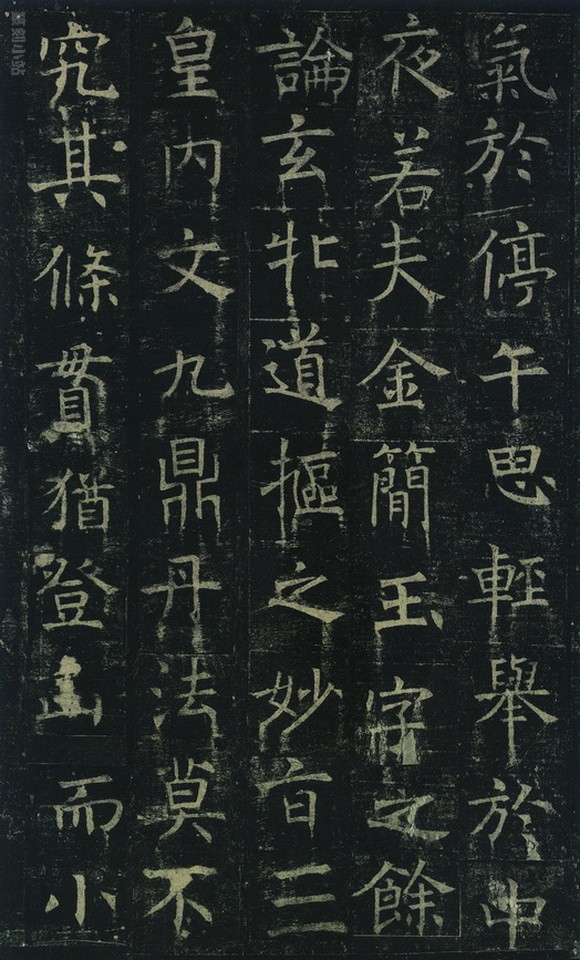 氣於停午思輕舉於中
夜若夫金簡玉字之餘
論玄牝道樞之妙旨三
皇内文九鼎丹法莫不
究其條貫猶登山而小